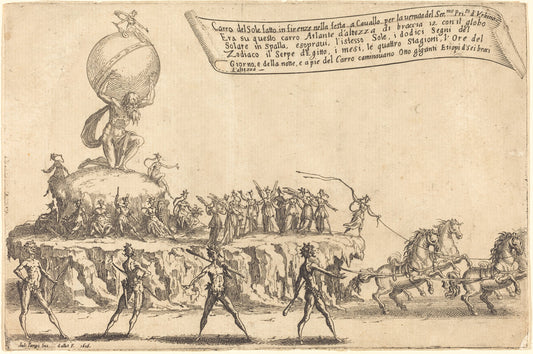 Carro del Sole fatto in firenze nella festa a Cauallo per la uenuta del Ser.mo Pri.pe d'Vrbino
Era su questo carro Atlante d'altezza di braccia 12 con il globo
Solare in Spalla, esopraui l'istesso Sole, i dodici Segni del
Zodiaco il Serpe d'Egitto, i mesi, le quattro Stagioni, l'Ore del
Giorno, e della notte, e a pie del Carro caminauano Otto giganti Etiopi d'sei braci
d'altezza
Iuli Parigi Inu. Callot F. 1616.